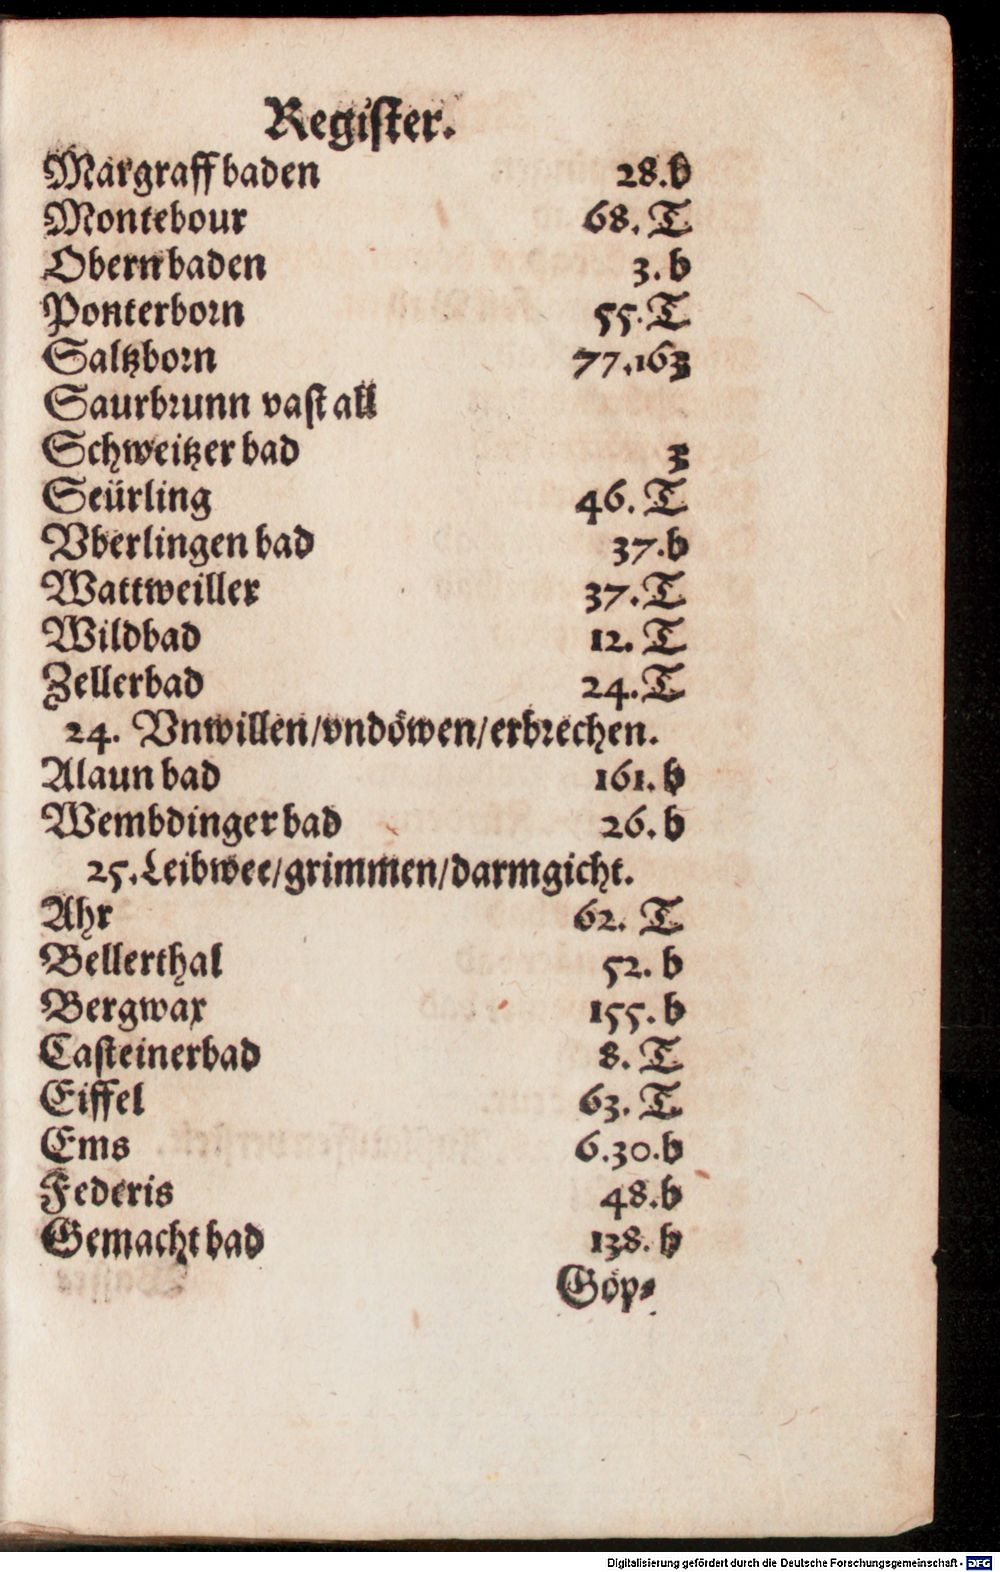 Register.
Margraff baden 28.b
Montebour 68. T
Obern baden 3. b
Ponterborn 55. T
Saltzborn 77.163
Saurbrunn vast all
Schweitzer bad 3
Seürling 46. T
Vberlingen bad 37.b
Wattweiller 37. T
Wildbad 12. T
Zellerbad 24. T
24. Vnwillen/vndöwen/erbrechen.
Alaun bad 161. b
Wembdinger bad 26. b
25. Leibwee/grimmen/darmgicht.
Ahr 62. T
Bellerthal 52. b
Bergwax 155. b
Casteinerbad 8. T
Eiffel 63. T
Ems 6.30.b
Federis 48.b
Gemacht bad 138. b
Göp-
Digitalisierung gefördert durch die Deutsche Forschungsgemeinschaft - DFG